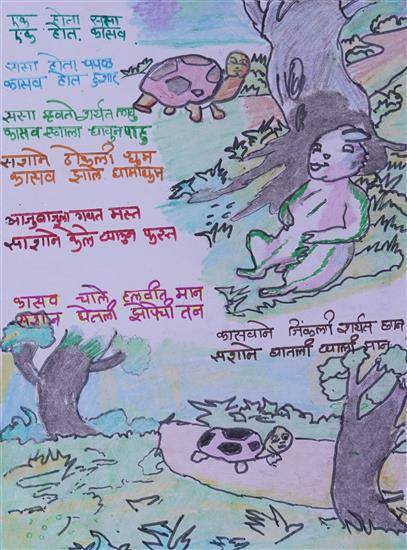 एक होता ससा
एक होत कासव
ससा होता चपळ
कासव होत हुशार
ससा म्हणतो शर्यत लावू
कासव म्हणाला धावून पाहू
सशाने ठोकली धूम
कासव झाले घामाघूम
आजुबाजुला गवत मस्त
सशाने केले खाऊन फस्त
कासव चाले हलवीत मान
सशान घेतली झोप
कासवाने जिंकली शर्यत छान
सशाने घातली खाली मान